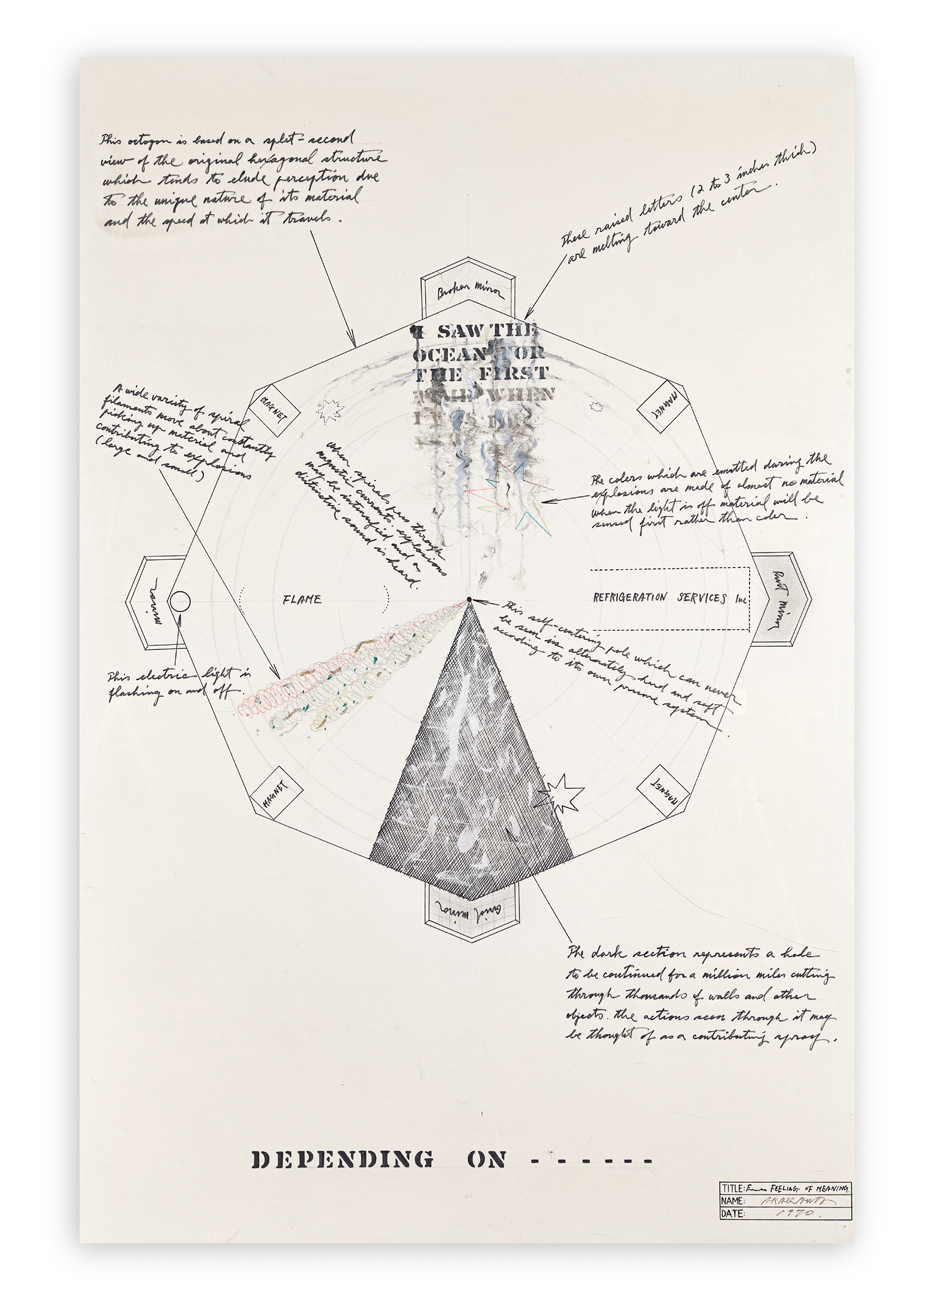 This octogon is based on a split-second
view of the original hexagonal structure
which tends to elude perception due
to the unique nature of its material
and the speed at which it travels.
These raised letters (2 to 3 inches thick)
are melting toward the center.
Broken mirror
I SAW THE
OCEAN FOR
THE FIRST
TIME WHEN
I WAS
MAGNET
MAGNET
A wide variety of spiral
filaments move about constantly
picking up material and
contributing to explosions
(large and small)
When spirals pass through
magnetic currents, explosions
may be intensified and a
distinctive sound is heard.
The colors which are emitted during the
explosions are made of almost no material
when the light is off material will be
sensed first rather than color.
mirror
FLAME
REFRIGERATION SERVICES Inc
mirror
This self-centering pole which can never
be seen is alternately hard and soft
according to its own pressure system.
This electric light is
flashing on and off.
MAGNET
MAGNET
mirror
The dark section represents a hole
to be continued for a million miles cutting
through thousands of walls and other
objects. The actions seen through it may
be thought of as a contributing spray.
DEPENDING ON ------
TITLE: FEELING OF MEANING
NAME: ARAKAWA
DATE: 1970.